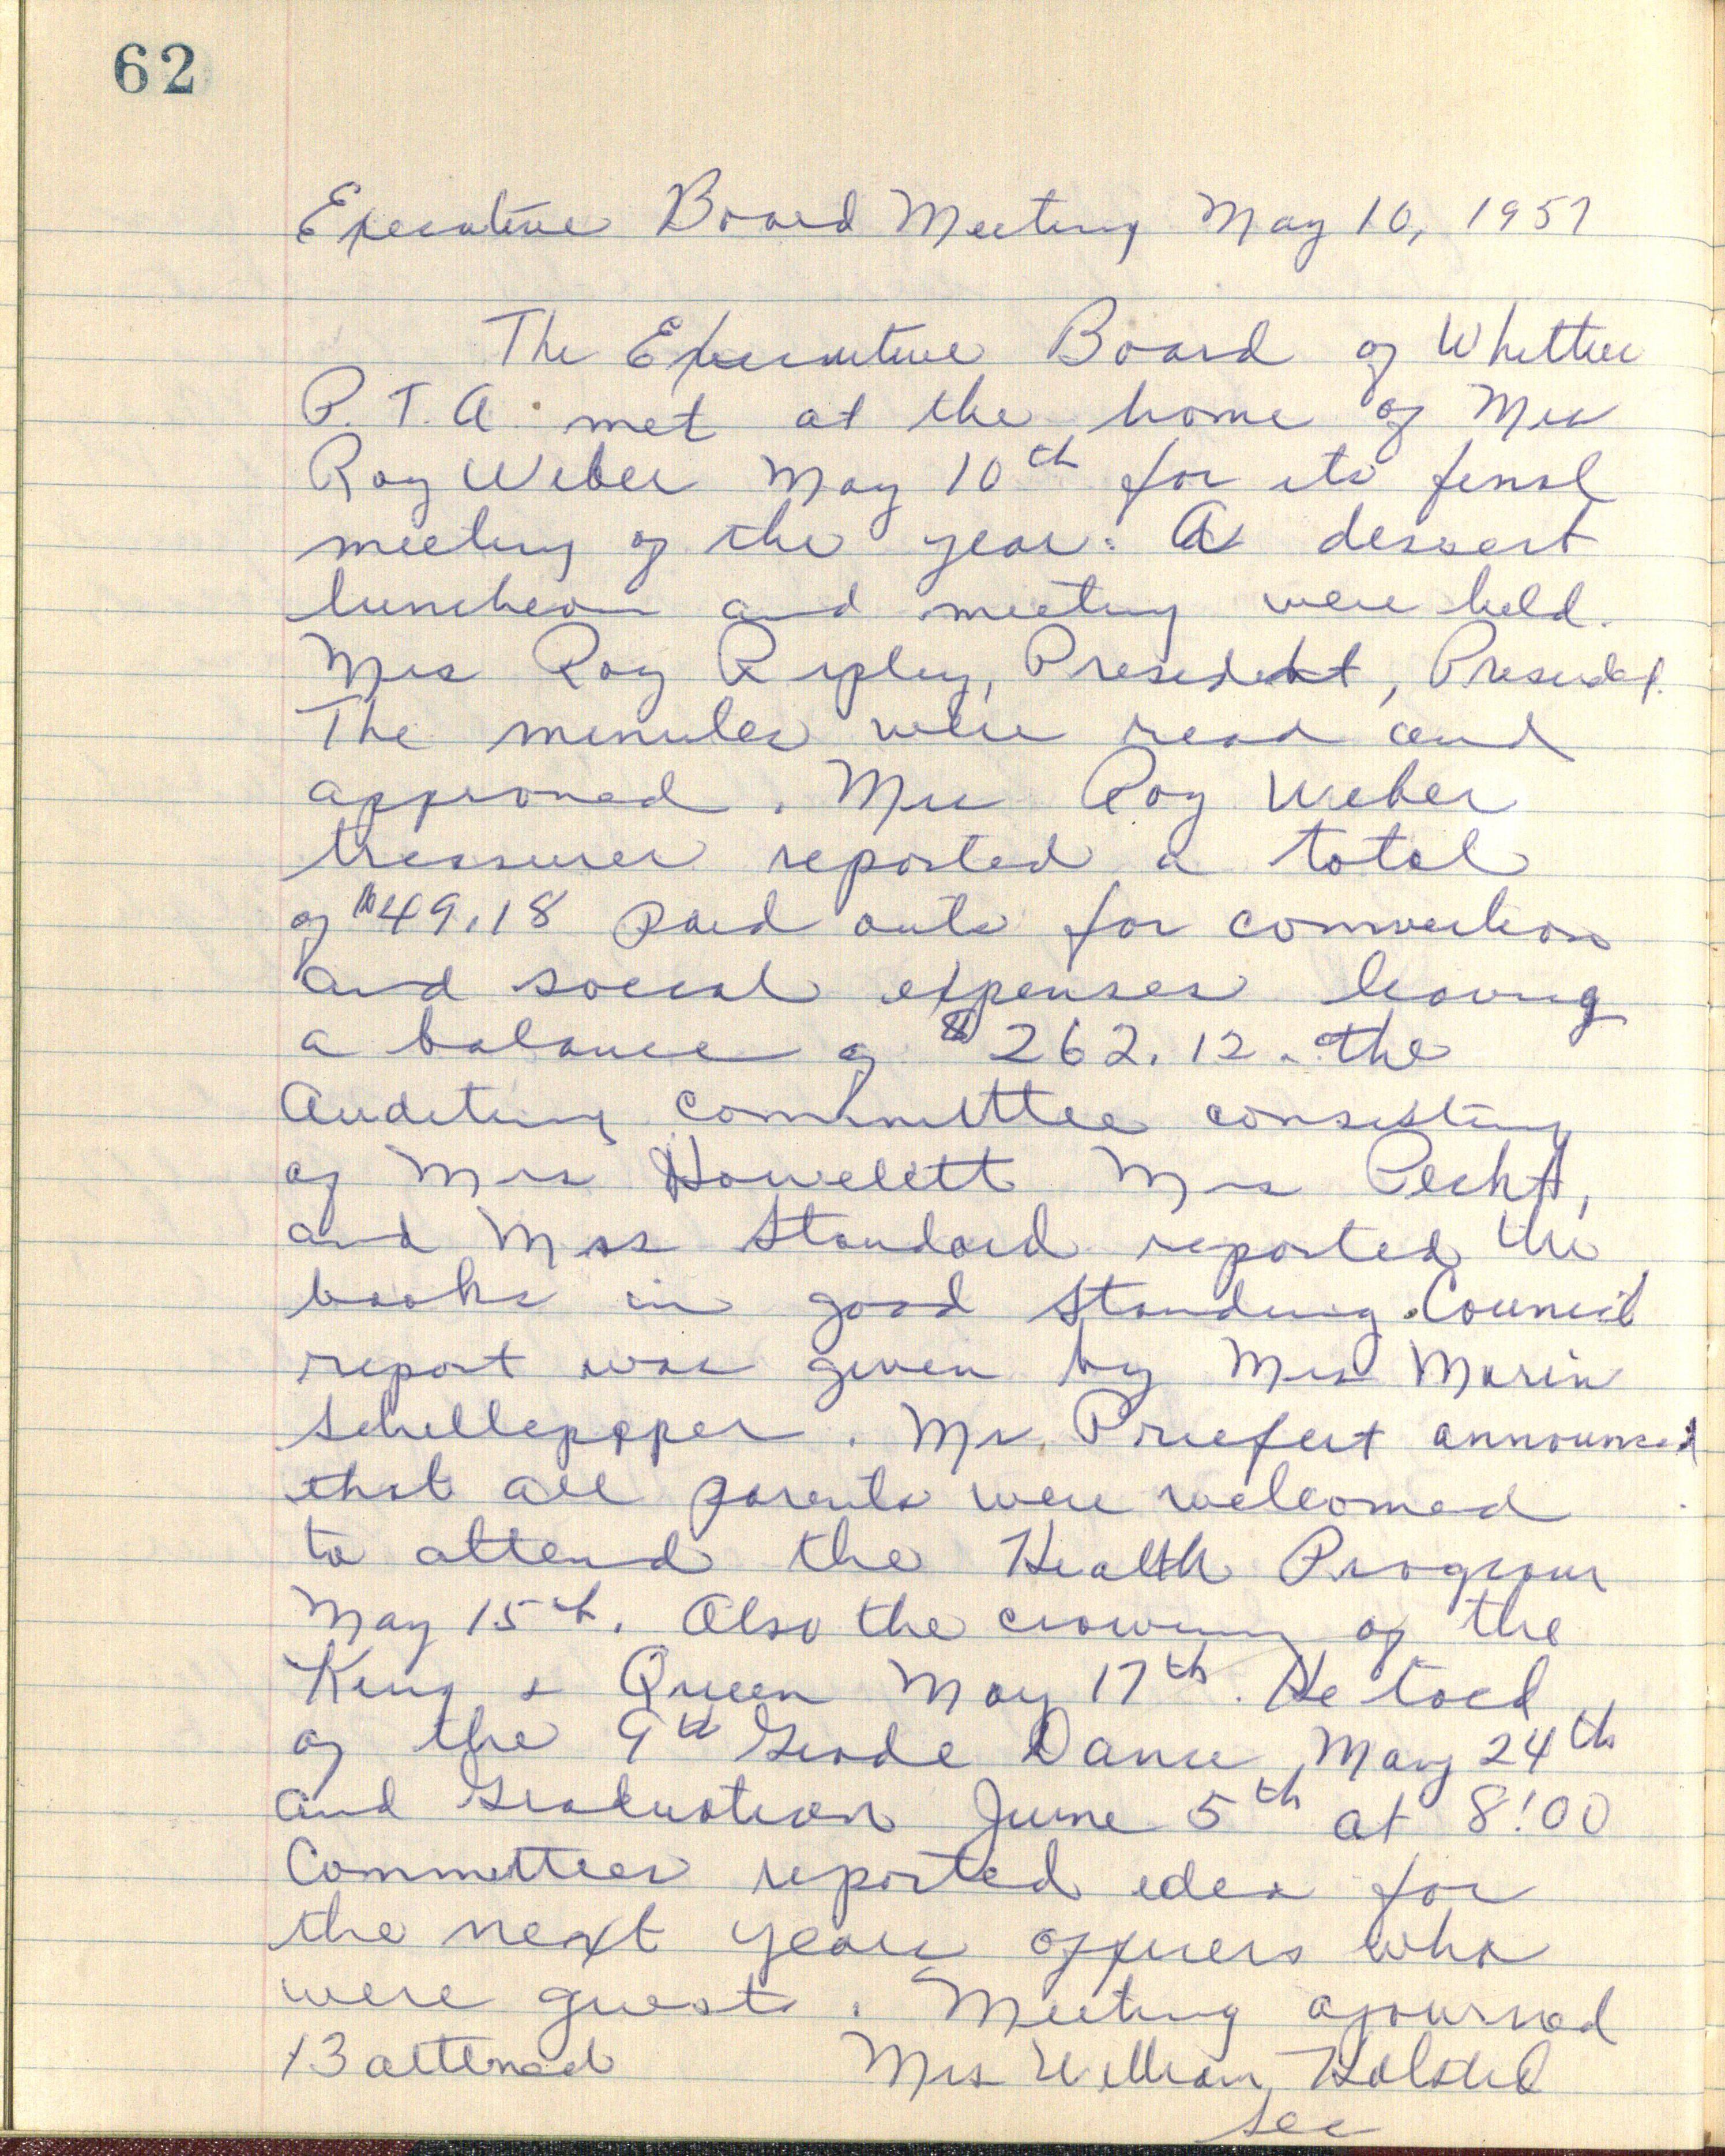 62
Executive Board Meeting May 10, 1957
The Executive Board of Whittier
P.T.A. met at the home of Mrs
Roy Weber May 10th for its final
meeting of the year. A dessert
luncheon and meeting were held.
Mrs Roy Ripley, President, Presided.
The minutes were read and
approved. Mrs Roy Weber
treasurer reported a total
of $49.18 paid outs for convention
and social expenses leaving
a balance of $262.12. the
Auditing committee consisting
of Mrs Howelett Mrs Pecht,
and Miss Standard reported the
books in good standing. Council
report was given by Mrs Marin
Schellepepper. Mr. Pruefert announced
that all parents were welcomed
to attend the Health Program
May 15th. Also the crowning of the
King & Queen May 17th. He told
of the 9th Grade Dance, May 24th
and Graduation June 5th at 8:00
Committees reported idea for
the next years officers who
were guests. Meeting ajourned
13 attened Mrs William
Sec